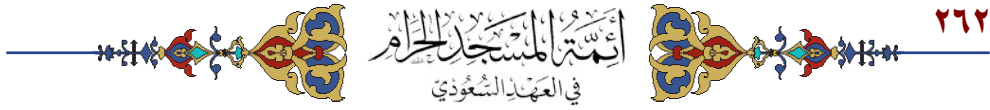 ٢٦٢
أَئِمَّةُ المَسْجِدِ الحَرَامِ
فِي العَهْدِ السُّعُودِيّ